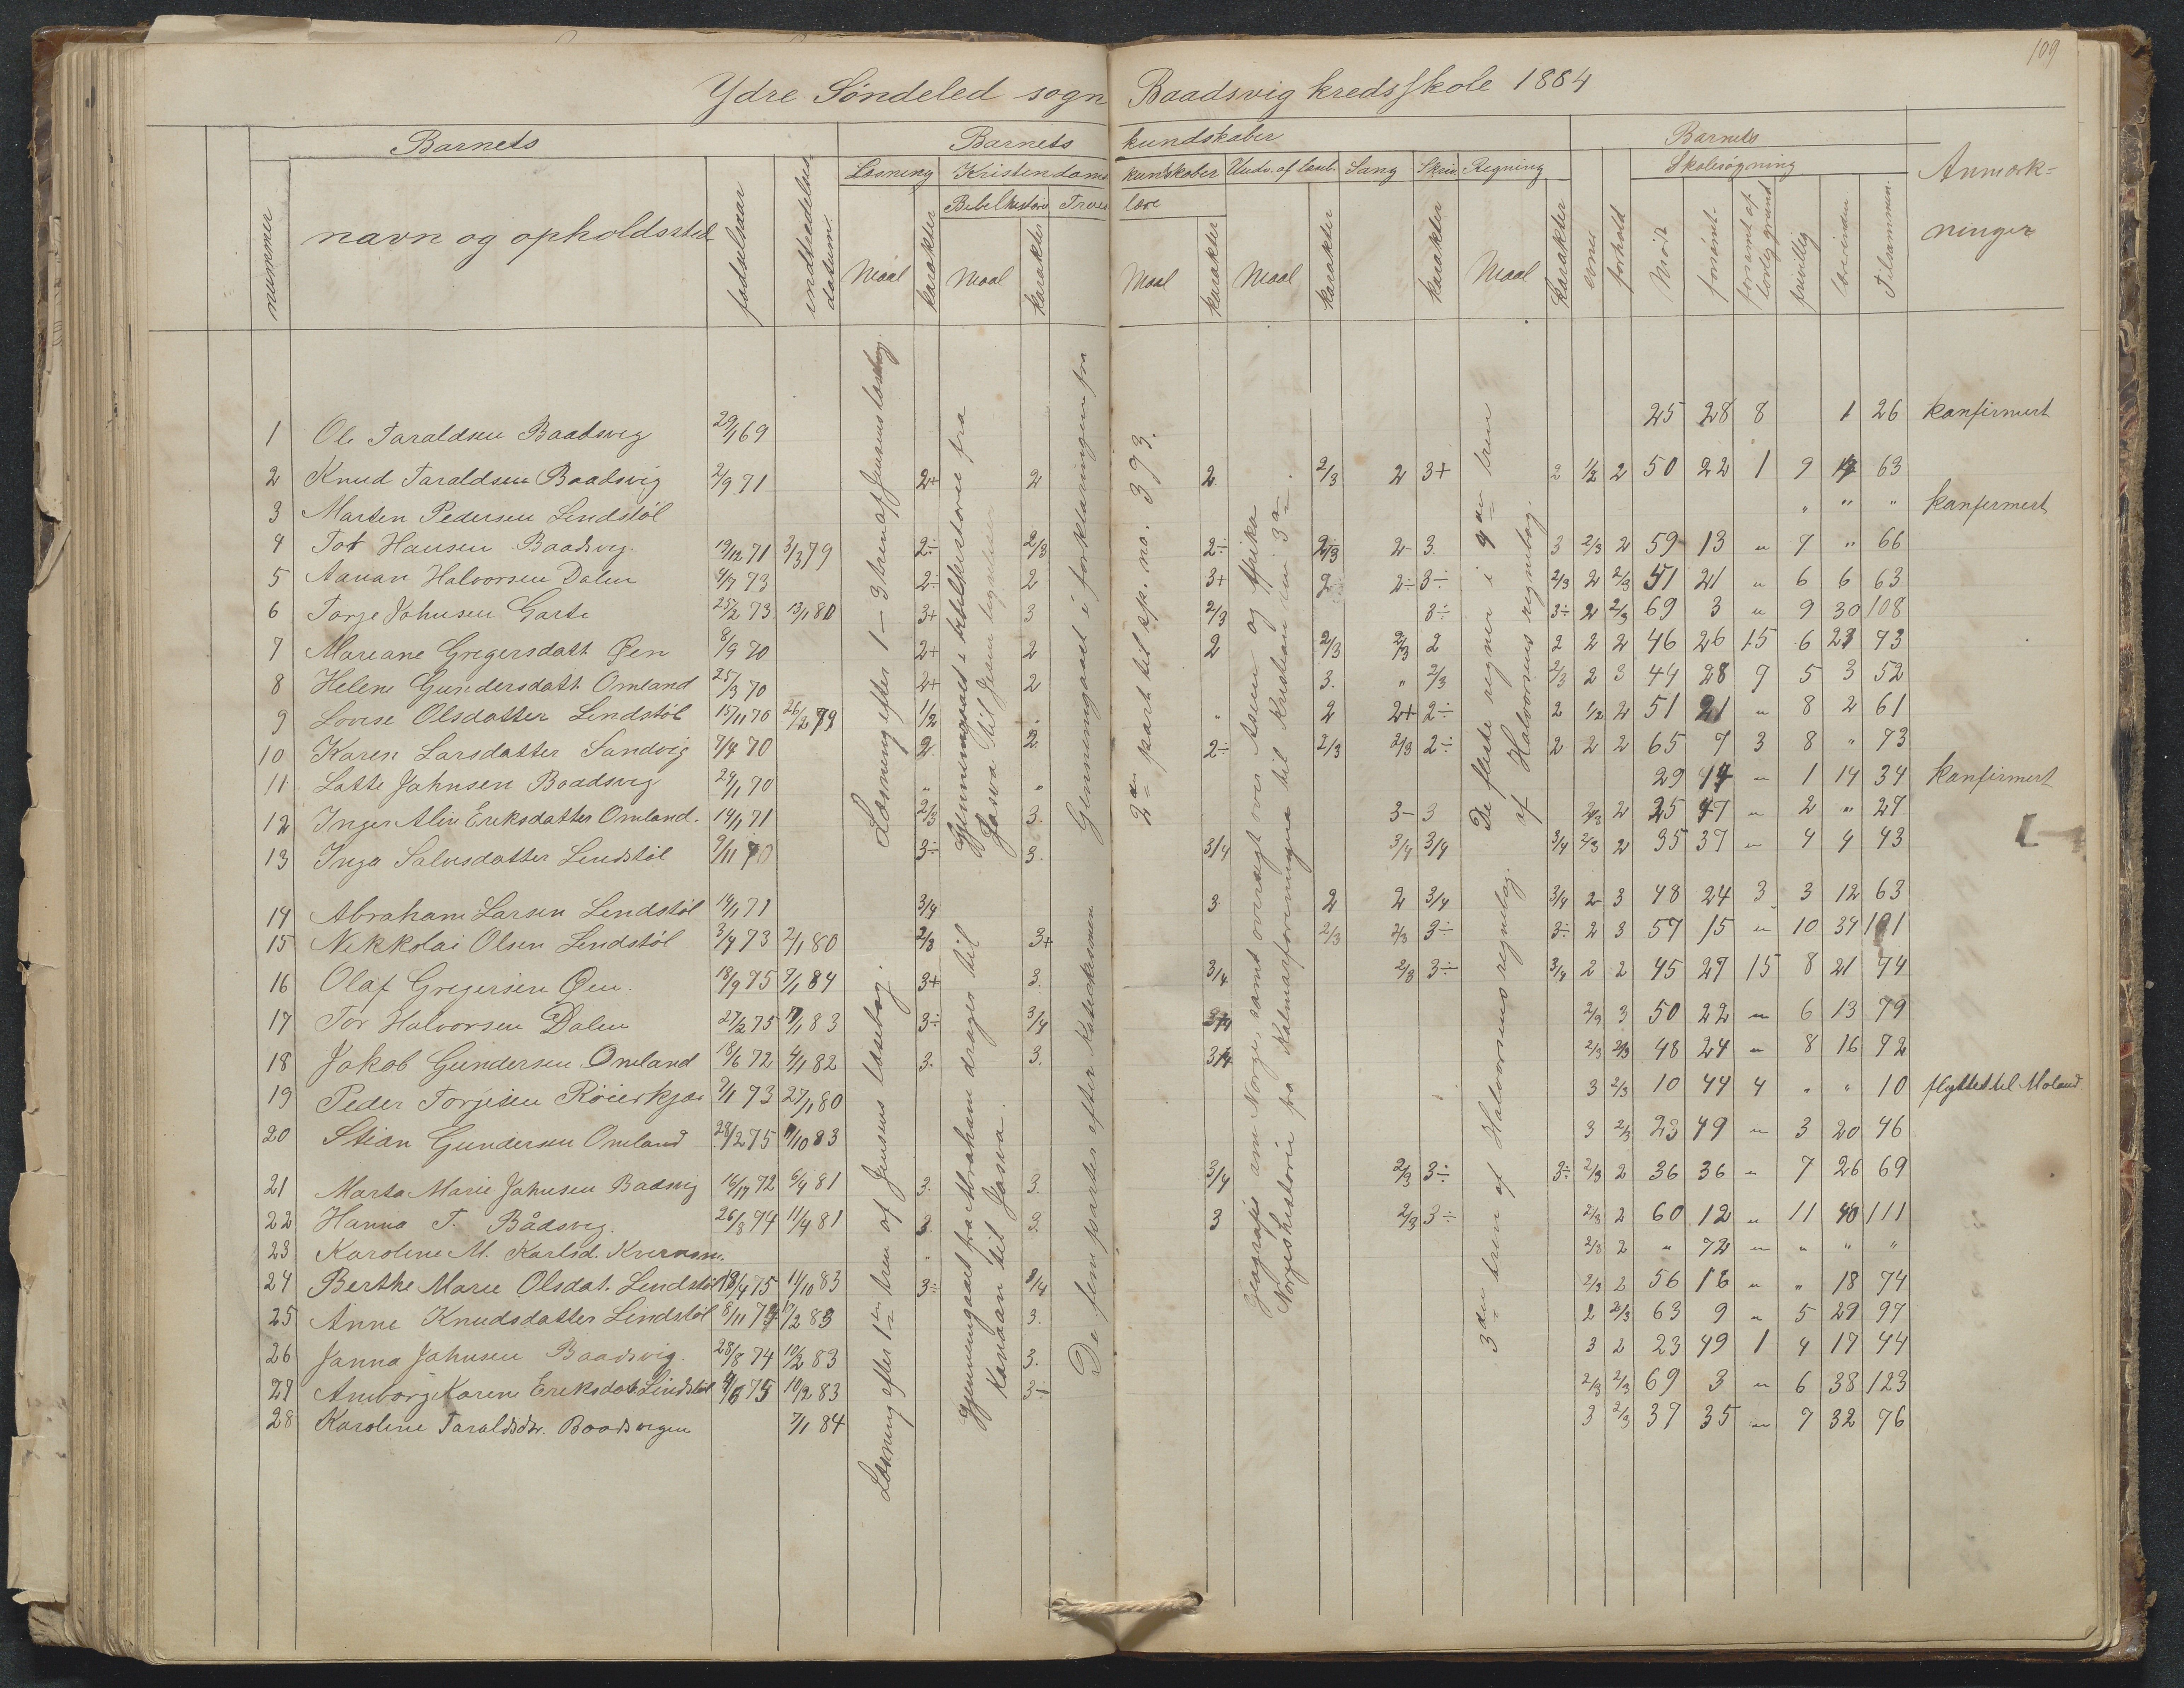 109
Ydre Söndeled sogn Baadsvig kredsskole 1884
Barnets Barnets kundskaber Barnets
Læsning Kristendoms kundskaber Udv. af læseb. Sang Skriv Regning Skolesøgning Anmærk=
Bibelhistorie Troes lære
nummer navn og opholdssted fødselsaar indtrædelses datum. Maal karakter Maal karakter Maal karakter Maal karakter karakter Maal karakter evner forhold Mödt forsömt forsömt af lovlig grund frivillig Tilsammen. ninger
1 Ole Taraldsen Baadsvig 29/1 69 25 28 8 1 26 konfirmert
2 Knud Taraldsen Baadsvig 2/9 71 2+ 2 2 2/3 2 3+ 2 1/2 2 50 22 1 9 63
3 Marten Pedersen Lindstöl " " " konfirmert
4 Hansen Baadsvig. 19/12 71 3/3 79 2÷ 2/3 2÷ 2/3 2- 3 3 2/3 2 59 13 " 7 " 66
5 Aanan Halvorsen Dalen 4/7 73 2÷ 2 3+ 2 2÷ 3÷ 2/3 2 2/3 51 21 " 6 6 63
6 Torje Johnsen Garte 25/2 73 13/1 80 3+ 3 2/3 3÷ 3÷ 2 2/3 69 3 " 9 30 108
7 Mareane Gregersdatt. Öen 8/9 70 2+ 2 2 2/3 2/3 2 2 2 2 46 26 15 6 21 73
8 Helene Gundersdatt. Omland 25/3 70 2+ 2 3. " 2/3 2/3 2 3 44 28 9 5 3 52
9 Lovise Olsdatter Lindstöl 15/11 70 26/2 79 1/2 " " 2 2+ 2÷ 2 1/2 2 51 21 " 8 2 61
10 Karen Larsdatter Sandvig 7/4 70 2 2 2÷ 2/3 2/3 2÷ 2 2 2 65 7 3 8 " 73
11 Latte Johnsen Baadsvig 29/1 70 " " 29 44 " 1 14 34 konfirmert
12 Inger Alie Eriksdatter Omland. 14/1 71 2/3 3. 3- 3 2/3 2 25 47 " 2 " 27
13 Inga Salvesdatter Lindstöl 9/11 70 3÷ 3. 3/4 3/4 3/4 3/4 2/3 2 35 37 " 4 4 43
14 Abraham Larsen Lindstöl 14/1 71 3/4 3 2 2 3/4 3/4 2 3 48 24 3 3 12 63
15 Nikkolai Olsen Lindstöl 3/4 73 2/1 80 2/3 3+ 2/3 2/3 3÷ 3÷ 2 3 57 15 " 10 34 101
16 Olaf Gregersen Öen. 18/9 75 7/1 84 3+ 3. 3/4 2/3 3÷ 3/4 2 2 45 27 15 8 21 74
17 Tor Halvorsen Dalen 27/2 75 17/1 83 3÷ 3/4 3/4 2/3 3 50 22 " 6 13 79
18 Jakob Gundersen Omland 18/6 72 4/1 82 3. 3. 3/4 2/3 2/3 48 24 " 8 16 72
19 Peder Torjesen Röierkjær 2/1 73 27/1 80 3 2/3 10 44 4 " " 10 flyttet til Moland
20 Stian Gundersen Omland 28/2 75 11/10 83 3 2/3 23 49 " 3 20 46
21 Marta Marie Johnsen Badsvig 72 6/4 81 3. 3. 3/4 2/3 3÷ 3÷ 2/3 2 36 36 " 7 26 69
22 Hanna T. Bådsvig. 26/3 74 11/4 81 3. 3. 3 2/3 3÷ 2/3 2 60 12 " 11 40 111
23 Karoline M. Karlsd. " 2/3 2 " 72 " " " "
24 Berthe Marie Olsdat. Lindstöl 18/4 75 11/10 83 3÷ 3/4 2/3 2 56 16 " " 18 74
25 Anne Knudsdatter Lindstöl 8/11 74 17/2 83 3. 2 2/3 63 9 " 5 29 97
26 Janna Johnsen Baadsvig. 28/8 74 10/2 83 3. 3 2 23 49 1 4 17 44
27 Amborg Karene Eriksdat. Lindstöl 4/6 75 10/2 83 3÷ 2/3 2/3 69 3 " 6 38 123
28 Karoline Taraldsdtr. Baadsvigen 7/1 84 3 2/3 37 35 " 7 32 76
Læsning efter 1–3 trin af Jensens læsebog
Læsning efter 1ste trin af Jensens læsebog.
Gjennemgaaet i bibelhistorie fra
Josva til Jesu lignelser
Gjennemgaaet fra Abraham drager til
Kanaan til Josva.
Gennemgaaet i forklaringen fra
De fem parter efter Katekismen
2den part til sp. no. 393.
Geografi om Norge, samt oversigt over Asien og Afrika
Norgeshistorie fra Kalmarforeningen til Kristian den 3die.
De fleste regner i 4de trin
af Halvorsens regnebog.
3die trin af Halvorsens regnebog.